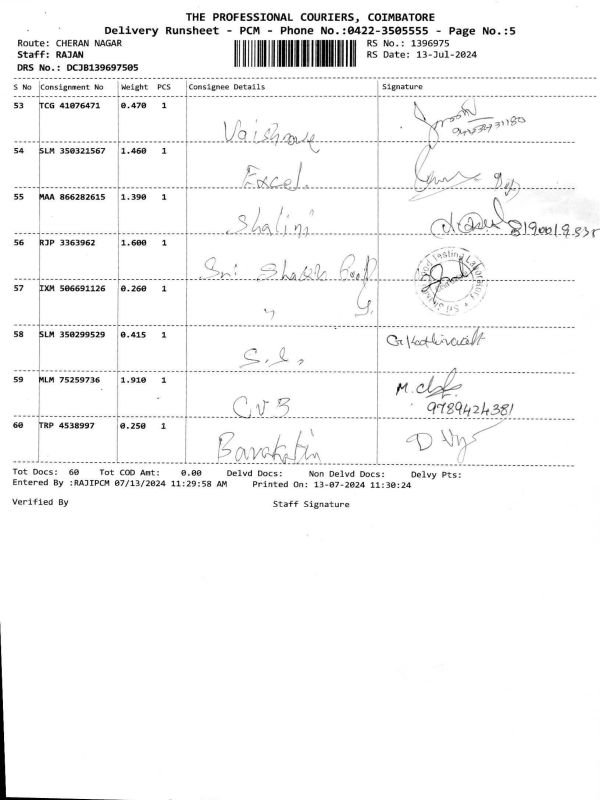 THE PROFESSIONAL COURIERS, COIMBATORE
Delivery Runsheet - PCM - Phone No.:0422-3505555 - Page No.:5
Route: CHERAN NAGAR RS No.: 1396975
Staff: RAJAN RS Date: 13-Jul-2024
DRS No.: DCJB139697505
S No Consignment No Weight PCS Consignee Details Signature
53 TCG 41076471 0.470 1
54 SLM 350321567 1.460 1
Excel.
55 MAA 866282615 1.390 1
Shalini
56 RJP 3363962 1.600 1
Sri
57 IXM 506691126 0.260 1
58 SLM 350299529 0.415 1
59 MLM 75259736 1.910 1
CVB 9789424381
60 TRP 4538997 0.250 1
Tot Docs: 60 Tot COD Amt: 0.00 Delvd Docs: Non Delvd Docs: Delvy Pts:
Entered By :RAJIPCM 07/13/2024 11:29:58 AM Printed On: 13-07-2024 11:30:24
Verified By Staff Signature